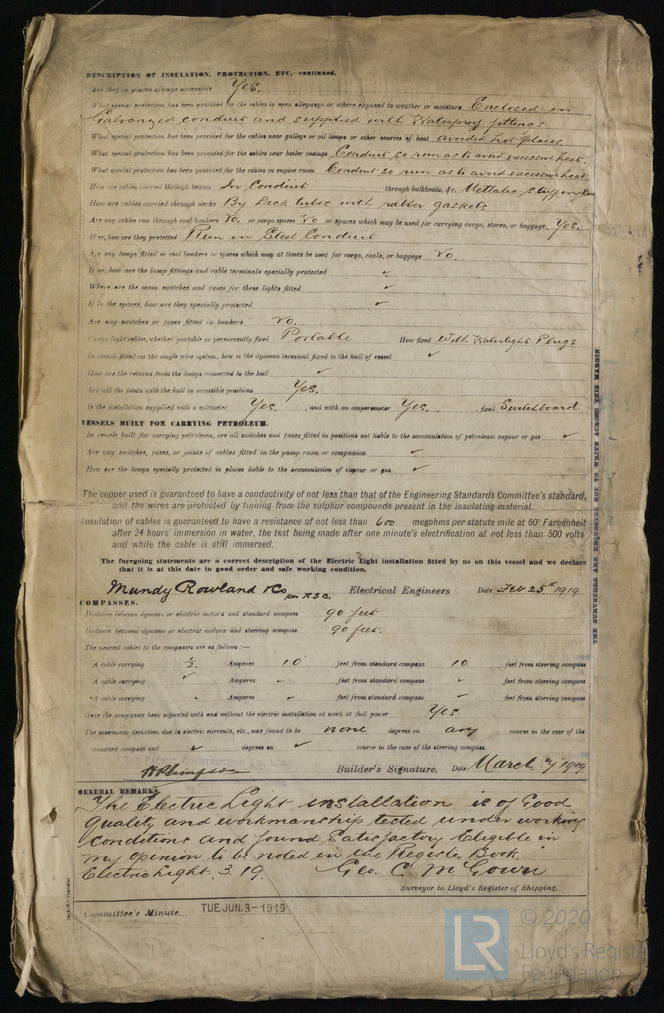 DESCRIPTION OF INSULATION, PROTECTION, ETC.—continued.
Are they in places always accessible Yes.
What special protection has been provided for the cables in open alleyways or where exposed to weather or moisture Enclosed in
Galvanized conduit and supplied with Waterproof fittings
What special protection has been provided for the cables near galleys or oil lamps or other sources of heat avoided hot places
What special protection has been provided for the cables near boiler casings Conduit so run as to avoid excessive heat.
What special protection has been provided for the cables in engine room Conduit so run as to avoid excessive heat
How are cables carried through beams In Conduit through bulkheads, &c. Metallic Stuffing Box
How are cables carried through decks By Deck tubes with rubber gaskets
Are any cables run through coal bunkers No. or cargo spaces No or spaces which may be used for carrying cargo, stores, or baggage Yes.
If so, how are they protected Run in Steel Conduit
Are any lamps fitted in coal bunkers or spaces which may at times be used for cargo, coals, or baggage No.
If so, how are the lamp fittings and cable terminals specially protected ✓
Where are the main switches and fuses for these lights fitted ✓
If in the spaces, how are they specially protected ✓
Are any switches or fuses fitted in bunkers No.
Cargo light cables, whether portable or permanently fixed Portable How fixed With Watertight Plugs
In vessels fitted on the single wire system, how is the dynamo terminal fixed to the hull of vessel ✓
How are the returns from the lamps connected to the hull ✓
Are all the joints with the hull in accessible positions Yes.
Is the installation supplied with a voltmeter Yes. , and with an amperemeter Yes. , fixed Switchboard
VESSELS BUILT FOR CARRYING PETROLEUM.
In vessels built for carrying petroleum, are all switches and fuses fitted in positions not liable to the accumulation of petroleum vapour or gas ✓
Are any switches, fuses, or joints of cables fitted in the pump room or companion ✓
How are the lamps specially protected in places liable to the accumulation of vapour or gas ✓
The copper used is guaranteed to have a conductivity of not less than that of the Engineering Standards Committee's standard,
and the wires are protected by tinning from the sulphur compounds present in the insulating material.
Insulation of cables is guaranteed to have a resistance of not less than 600 megohms per statute mile at 60° Farhenheit
after 24 hours' immersion in water, the test being made after one minute's electrification at not less than 500 volts
and while the cable is still immersed.
The foregoing statements are a correct description of the Electric Light installation fitted by us on this vessel and we declare
that it is at this date in good order and safe working condition.
Mundy Rowland & Co per R.S.G. Electrical Engineers Date Feb 25th 1919
COMPASSES.
Distance between dynamo or electric motors and standard compass 90 feet
Distance between dynamo or electric motors and steering compass 90 feet.
The nearest cables to the compasses are as follows:—
A cable carrying ½ Amperes 10 feet from standard compass 10. feet from steering compass
A cable carrying ✓ Amperes ✓ feet from standard compass ✓ feet from steering compass
A cable carrying ✓ Amperes ✓ feet from standard compass ✓ feet from steering compass
Have the compasses been adjusted with and without the electric installation at work at full power Yes
The maximum deviation due to electric currents, etc., was found to be none degrees on any course in the case of the
standard compass and ✓ degrees on ✓ course in the case of the steering compass.
CONSTRUCTION CO., LTD.
Builder's Signature. Date March 7/1919
GENERAL REMARKS.
The Electric Light installation is of Good
quality and workmanship tested under working
conditions and found Satisfactory Eligible in
my opinion to be noted in the Register Book,
Electric Light. 3.19. Geo. C. McGown
Surveyor to Lloyd's Register of Shipping.
Committee's Minute TUE. JUN. 3-1919
THE SURVEYORS ARE REQUESTED NOT TO WRITE ACROSS THIS MARGIN
LR
© 2020
Lloyd's Register
Foundation